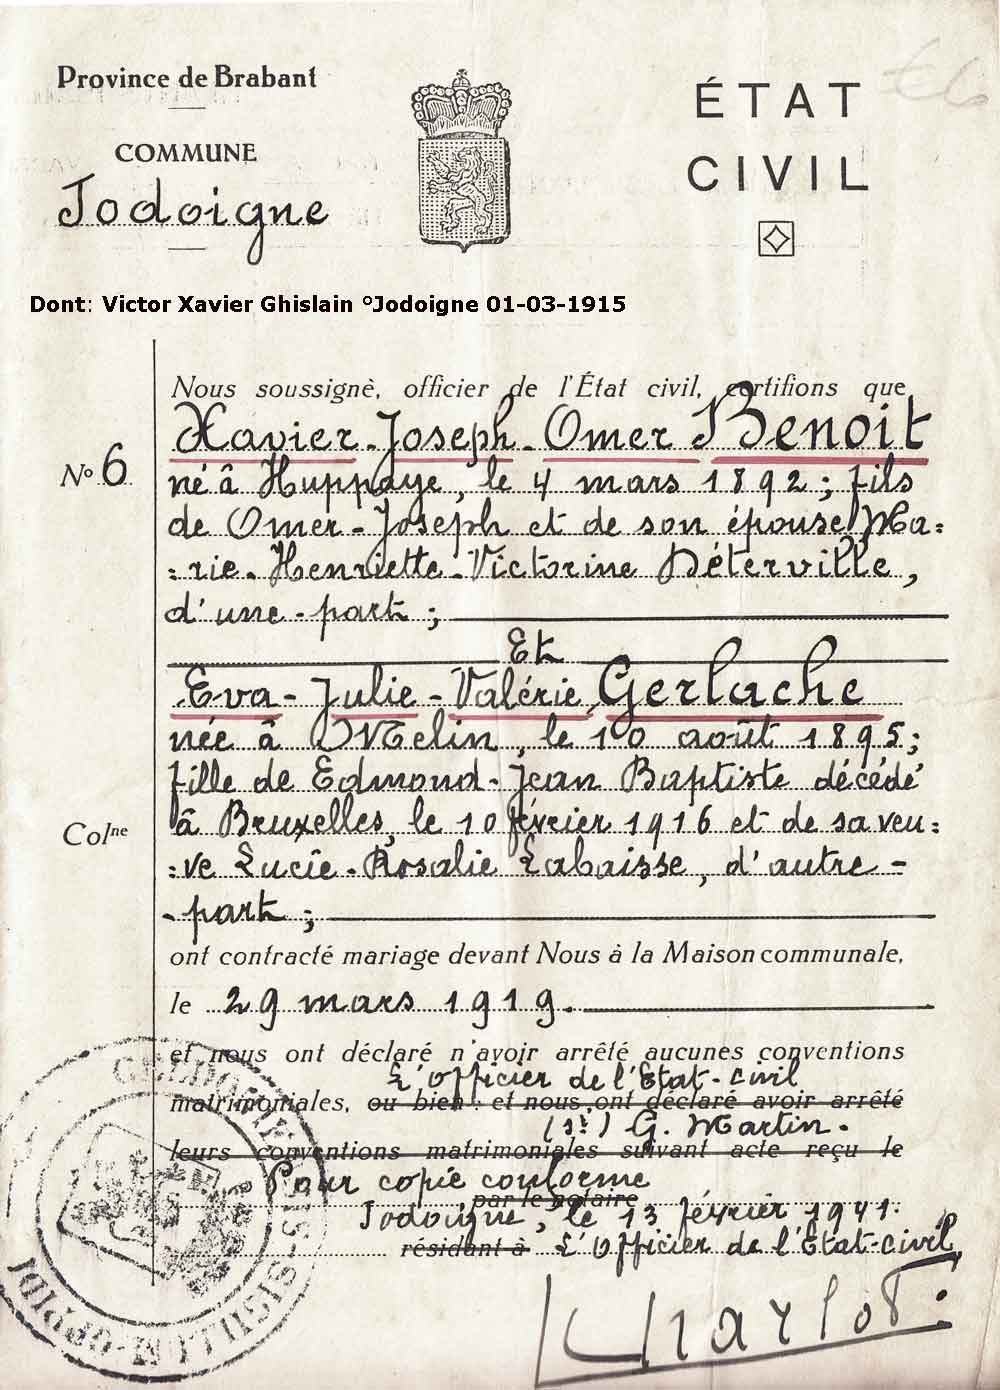 Province de Brabant
COMMUNE
Jodoigne
ÉTAT
CIVIL
Dont: Victor Xavier Ghislain °Jodoigne 01-03-1915
Nous soussigné, officier de l'État civil, certifions que
Xavier-Joseph-Omer Benoit
No 6
né à Huppaye, le 4 mars 1892; fils
de Omer-Joseph et de son épouse Ma=
=rie-Henriette-Victorine Déterville,
d'une-part;
Et
Eva-Julie-Valérie Gerlache
née à Mélin, le 10 août 1895;
fille de Edmond-Jean Baptiste décédé
Colne
à Bruxelles, le 10 février 1916 et de sa veu=
=ve Lucie-Rosalie Labaisse, d'autre-
-part;
ont contracté mariage devant Nous à la Maison communale,
le 29 mars 1919.
et nous ont déclaré n'avoir arrêté aucunes conventions
L'Officier de l'Etat-civil
matrimoniales, ou bien: et nous ont déclaré avoir arrêté
(sé) G. Martin.
leurs conventions matrimoniales suivant acte reçu le
Pour copie conforme
par le notaire
Jodoigne, le 13 février 1941.
résidant à L'Officier de l'Etat-civil,
Charlot